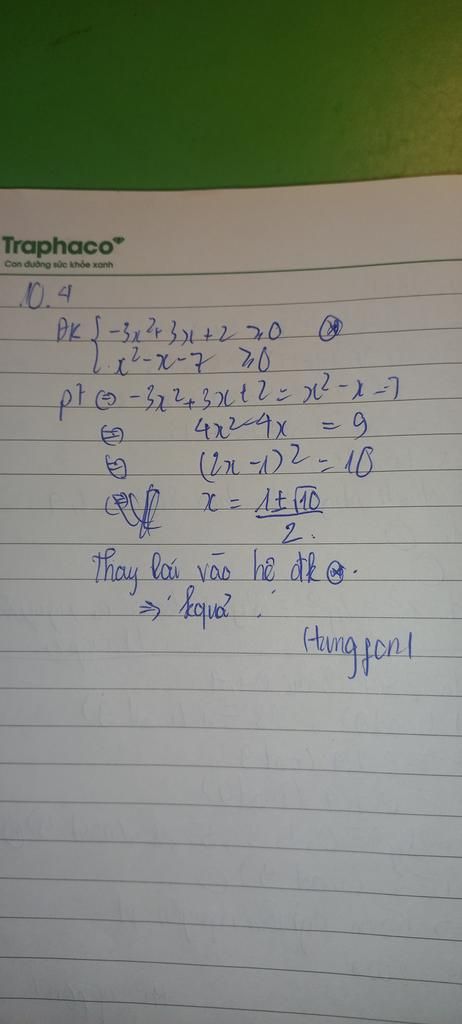 Traphaco
Con đường sức khỏe xanh
10.4
ĐK { -3x²+3x+2 ≥0 ⊛
x²-x-7 ≥0
pt ⇔ -3x²+3x+2 = x²-x-7
⇔ 4x²-4x = 9
⇔ (2x-1)² = 10
x = (1±√10)/2.
Thay lại vào hệ đk ⊛.
⇒ kquả.